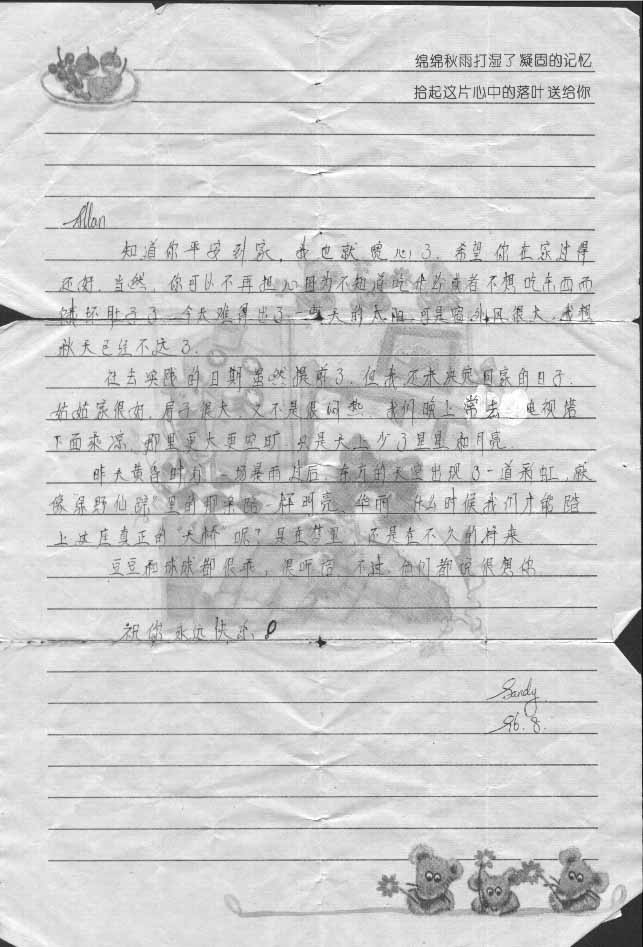 绵绵秋雨打湿了凝固的记忆
拾起这片心中的落叶送给你
Allan
知道你平安到家，我也就宽心了。希望你在家过得
还好。当然，你可以不再担心因为不知道吃什么或者不想吃东西而
饿坏肚子了。今天难得出了一整天的太阳，可是窗外风很大，我想
秋天已经不远了。
往去实践的日期虽然提前了，但我还未决定回家的日子。
姑姑家很好，房子很大，又不是很闷热。我们晚上常去电视塔
下面乘凉，那里更大更空旷，只是天上少了星星和月亮。
昨天黄昏时分，一场暴雨过后，东方的天空出现了一道彩虹，就
像“绿野仙踪”里的那一样明亮、华丽。什么时候我们才能踏
上这座真正的“天桥”呢？是在梦里，还是在不久的将来
豆豆和球球都很乖，很听话，不过，他们都说很想你
祝你永远快乐！
Sandy
96.8.